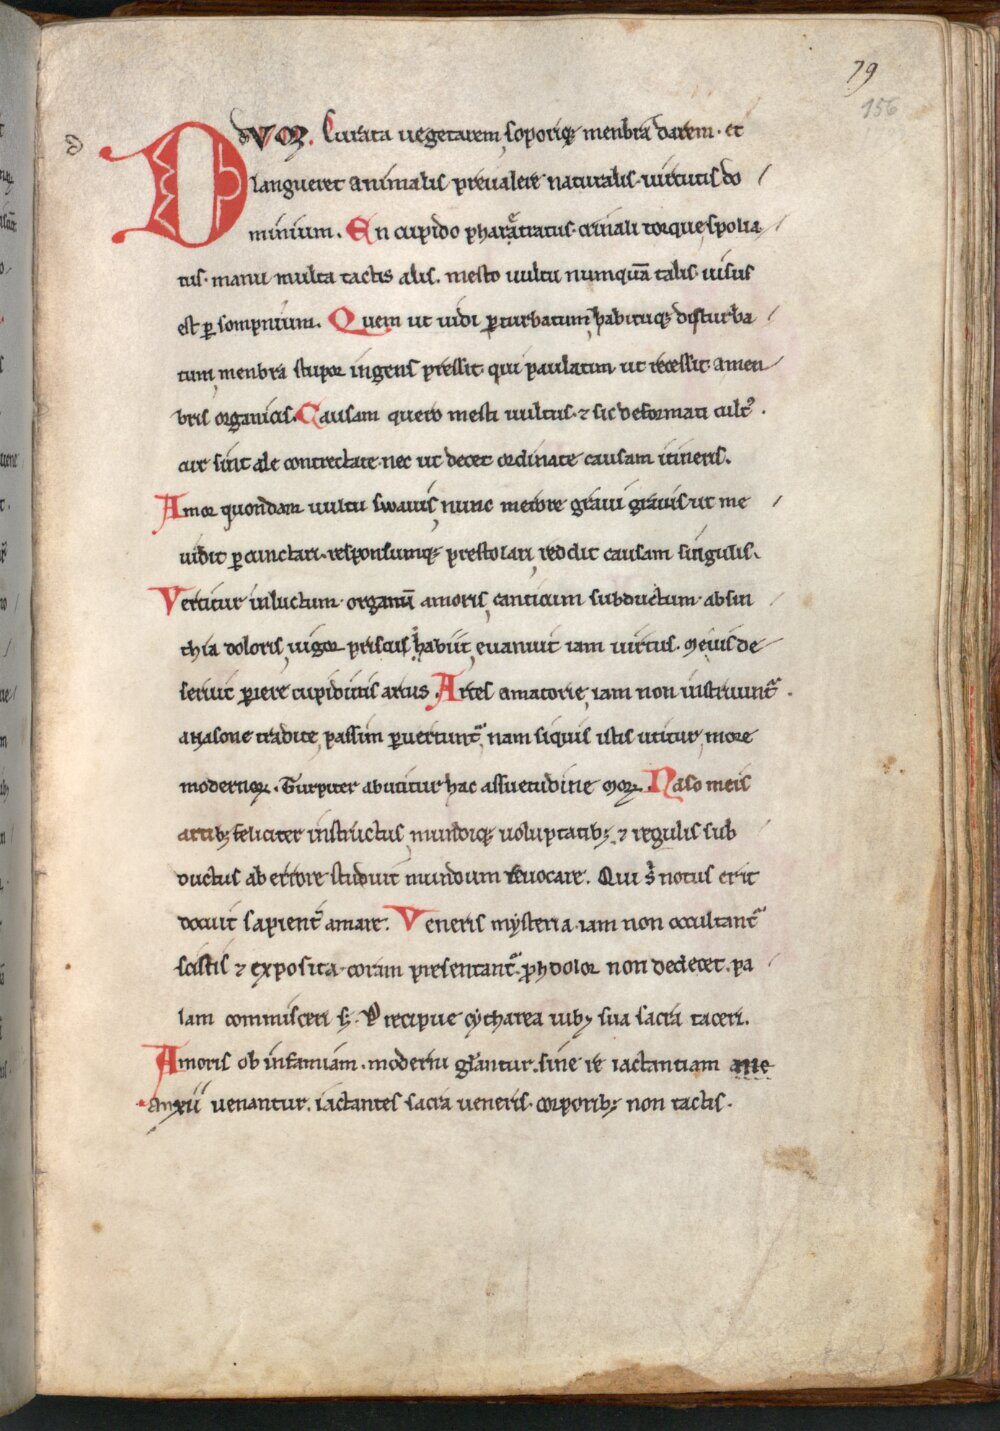 79
156
d
DVM. Curata uegetarem soporiqꝫ menbra darem. et
langueret animalis preualere naturalis. uirtutis do
minium. En cupido pharatratus. crinali torque spolia
tus. manu multa tactis alis. mesto uultu numquā talis. uisus
est ꝑ sompnium. Quem ut uidi ꝑturbatum habituqꝫ disturba
tum, menbra stupor ingens pressit. qui paulatim ut recessit a men
bris organicis. Causam quero mesti uultus. ⁊ sic deformati cult᷒.
cur sint ale contrectate. nec ut decet ordinate causam itineris.
Amor quondam uultu swauis, nunc merore graui grauis. ut me
uidit ꝑcunctari. responsumqꝫ prestolari, reddit causam singulis.
Vertitur in luctum. organū amoris, canticum subductum. absin
thia doloris, uigor priscus habiit, euanuit iam uirtus. me uis de
seruit ꝑiere cupidinis arcus. Artes amatorie, iam non instruunt᷑.
a nasone tradite, passim ꝑuertunt᷑, nam siquis istis utitur, more
modernoꝝ. Turpiter abutitur hac assuetudine moꝝ. Naso meis
artibꝫ feliciter instructus, mundoqꝫ uoluptatibꝫ, ⁊ regulis sub
ductus ab errore studuit mundum reuocare. Qui s̄ notus erit
docuit sapient̄ amare. Veneris mysteria. iam non occultant᷑
scistis ⁊ exposita. coram presentant᷑. proh dolor non dedecet. pa
lam commisceri sꝫ. Precipue cytharea iubꝫ sua sacra taceri.
Amoris ob infamiam. moderni gl̄antur. sine re iactantiam ame
anxii uenantur. iactantes sacra ueneris. corporibꝫ non tactis.